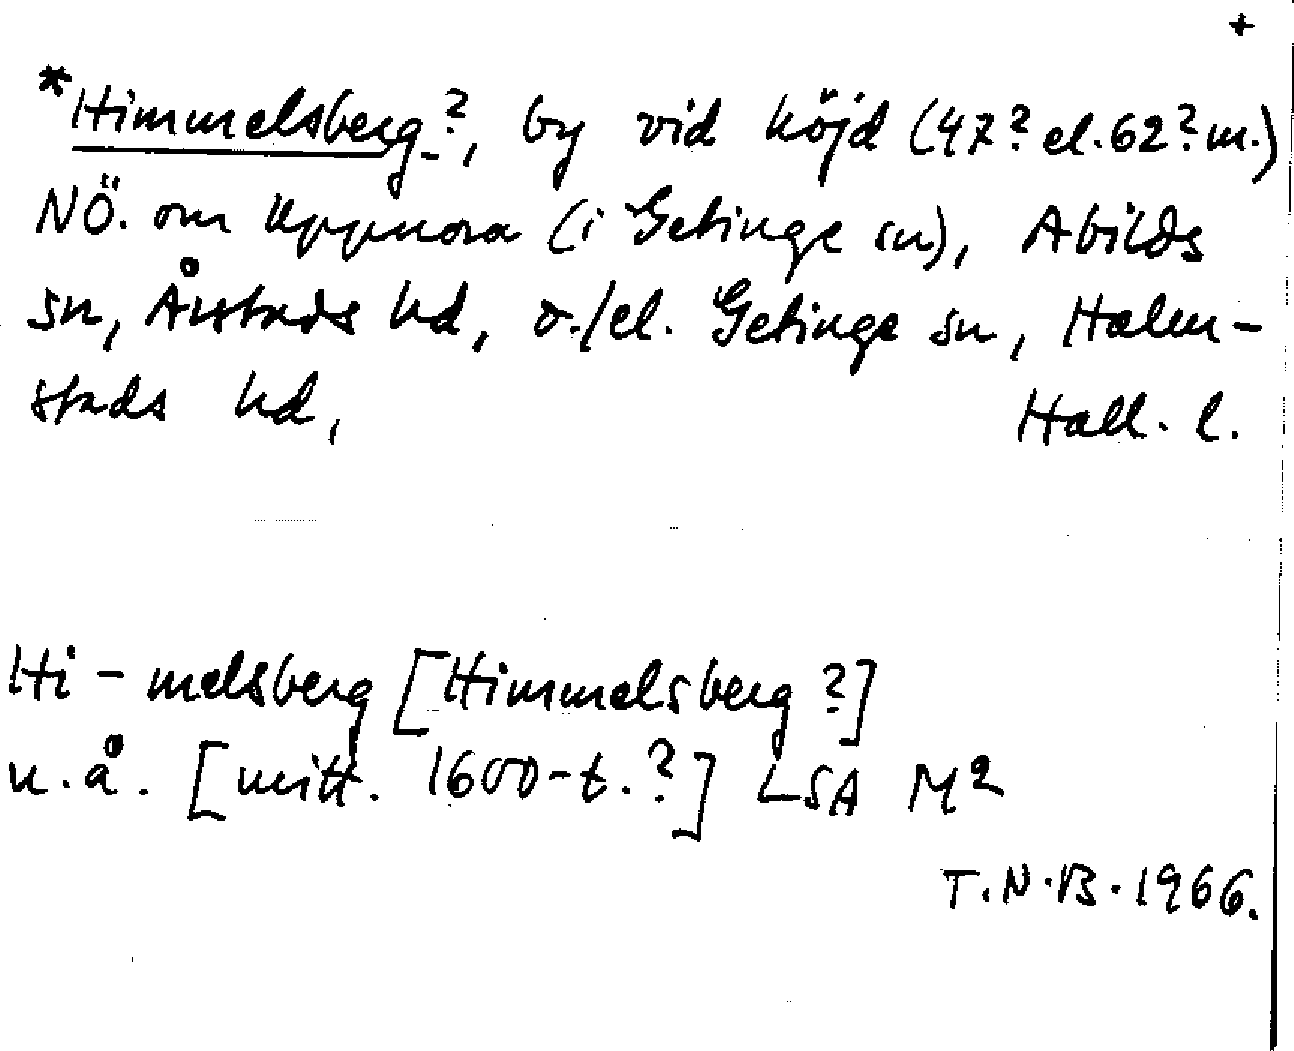 +
*Himmelsberg?, by vid höjd (47? el. 62? m.)
NÖ. om Uppnora (i Getinge sn), Abilds
sn, Årstads hd, o./el. Getinge sn, Halm-
stads hd, Hall. l.
Hi - melsberg [Himmelsberg?]
u.å. [mitt. 1600-t.?] LSA M2
T.N.B. 1966.